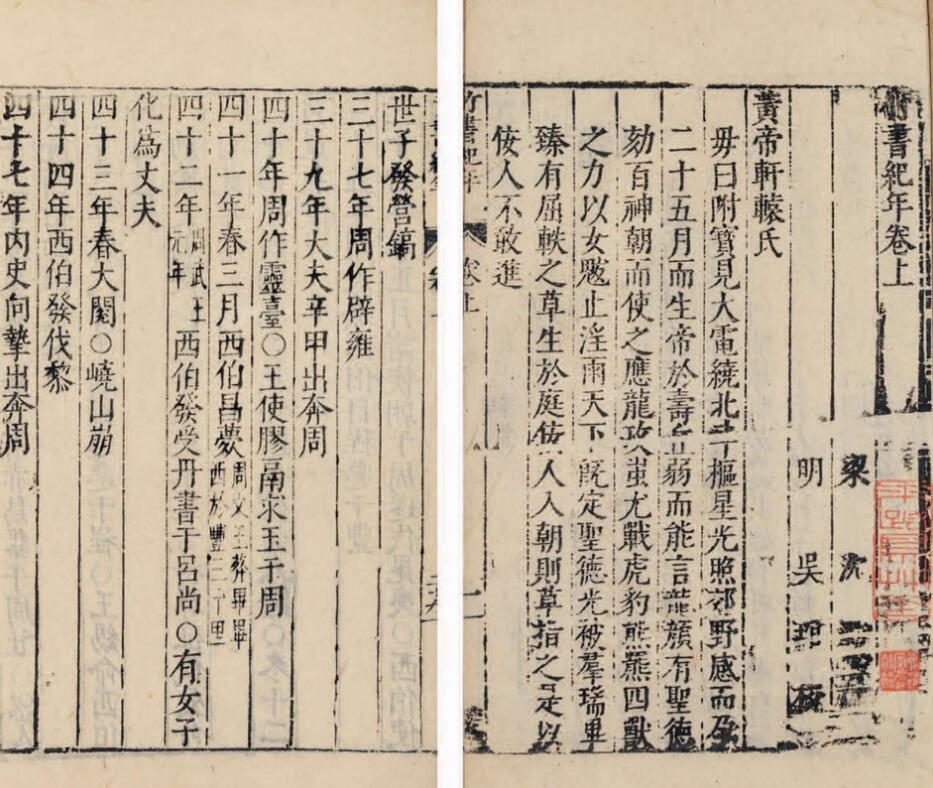 竹書紀年卷上
梁 沈
明 吳 琯 校
黃帝軒轅氏
毋曰附寶見大電繞北斗樞星光照郊野感而孕
二十五月而生帝於壽丘弱而能言龍顏有聖德
劾百神朝而使之應龍攻蚩尤戰虎豹熊羆四獸
之力以女魃止淫雨天下既定聖德光被羣瑞畢
臻有屈軼之草生於庭佞人入朝則草指之是以
佞人不敢進
竹書紀年 卷上 一
世子發營鎬
三十七年周作辟雍
三十九年大夫辛甲出奔周
四十年周作靈臺○王使膠鬲求玉于周
四十一年春三月西伯昌薨周文王葬畢畢西於豐三十里
四十二年周武王元年西伯發受丹書于呂尚○有女子
化爲丈夫
四十三年春大閱○嶢山崩
四十四年西伯發伐黎
四十七年內史向摯出奔周